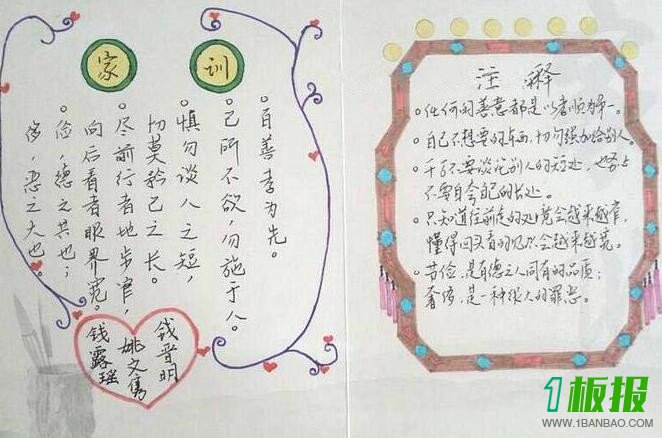 家训
百善孝为先。
己所不欲,勿施于人。
慎勿谈人之短,
切莫矜己之长。
尽前行者地步窄,
向后看者眼界宽。
俭,德之共也;
侈,恶之大也。
钱晋明
姚文隽
钱露瑶
注释
任何的善意都是以孝顺为第一。
自己不想要的东西,切勿强加给别人。
千万不要谈论别人的短处,也务必
不要自夸自己的长处。
只知道往前走的处境会越来越窄,
懂得回头看的见识会越来越宽。
节俭,是有德之人同有的品质;
奢侈,是一种很大的罪恶。
1板报
WWW.1BANBAO.COM